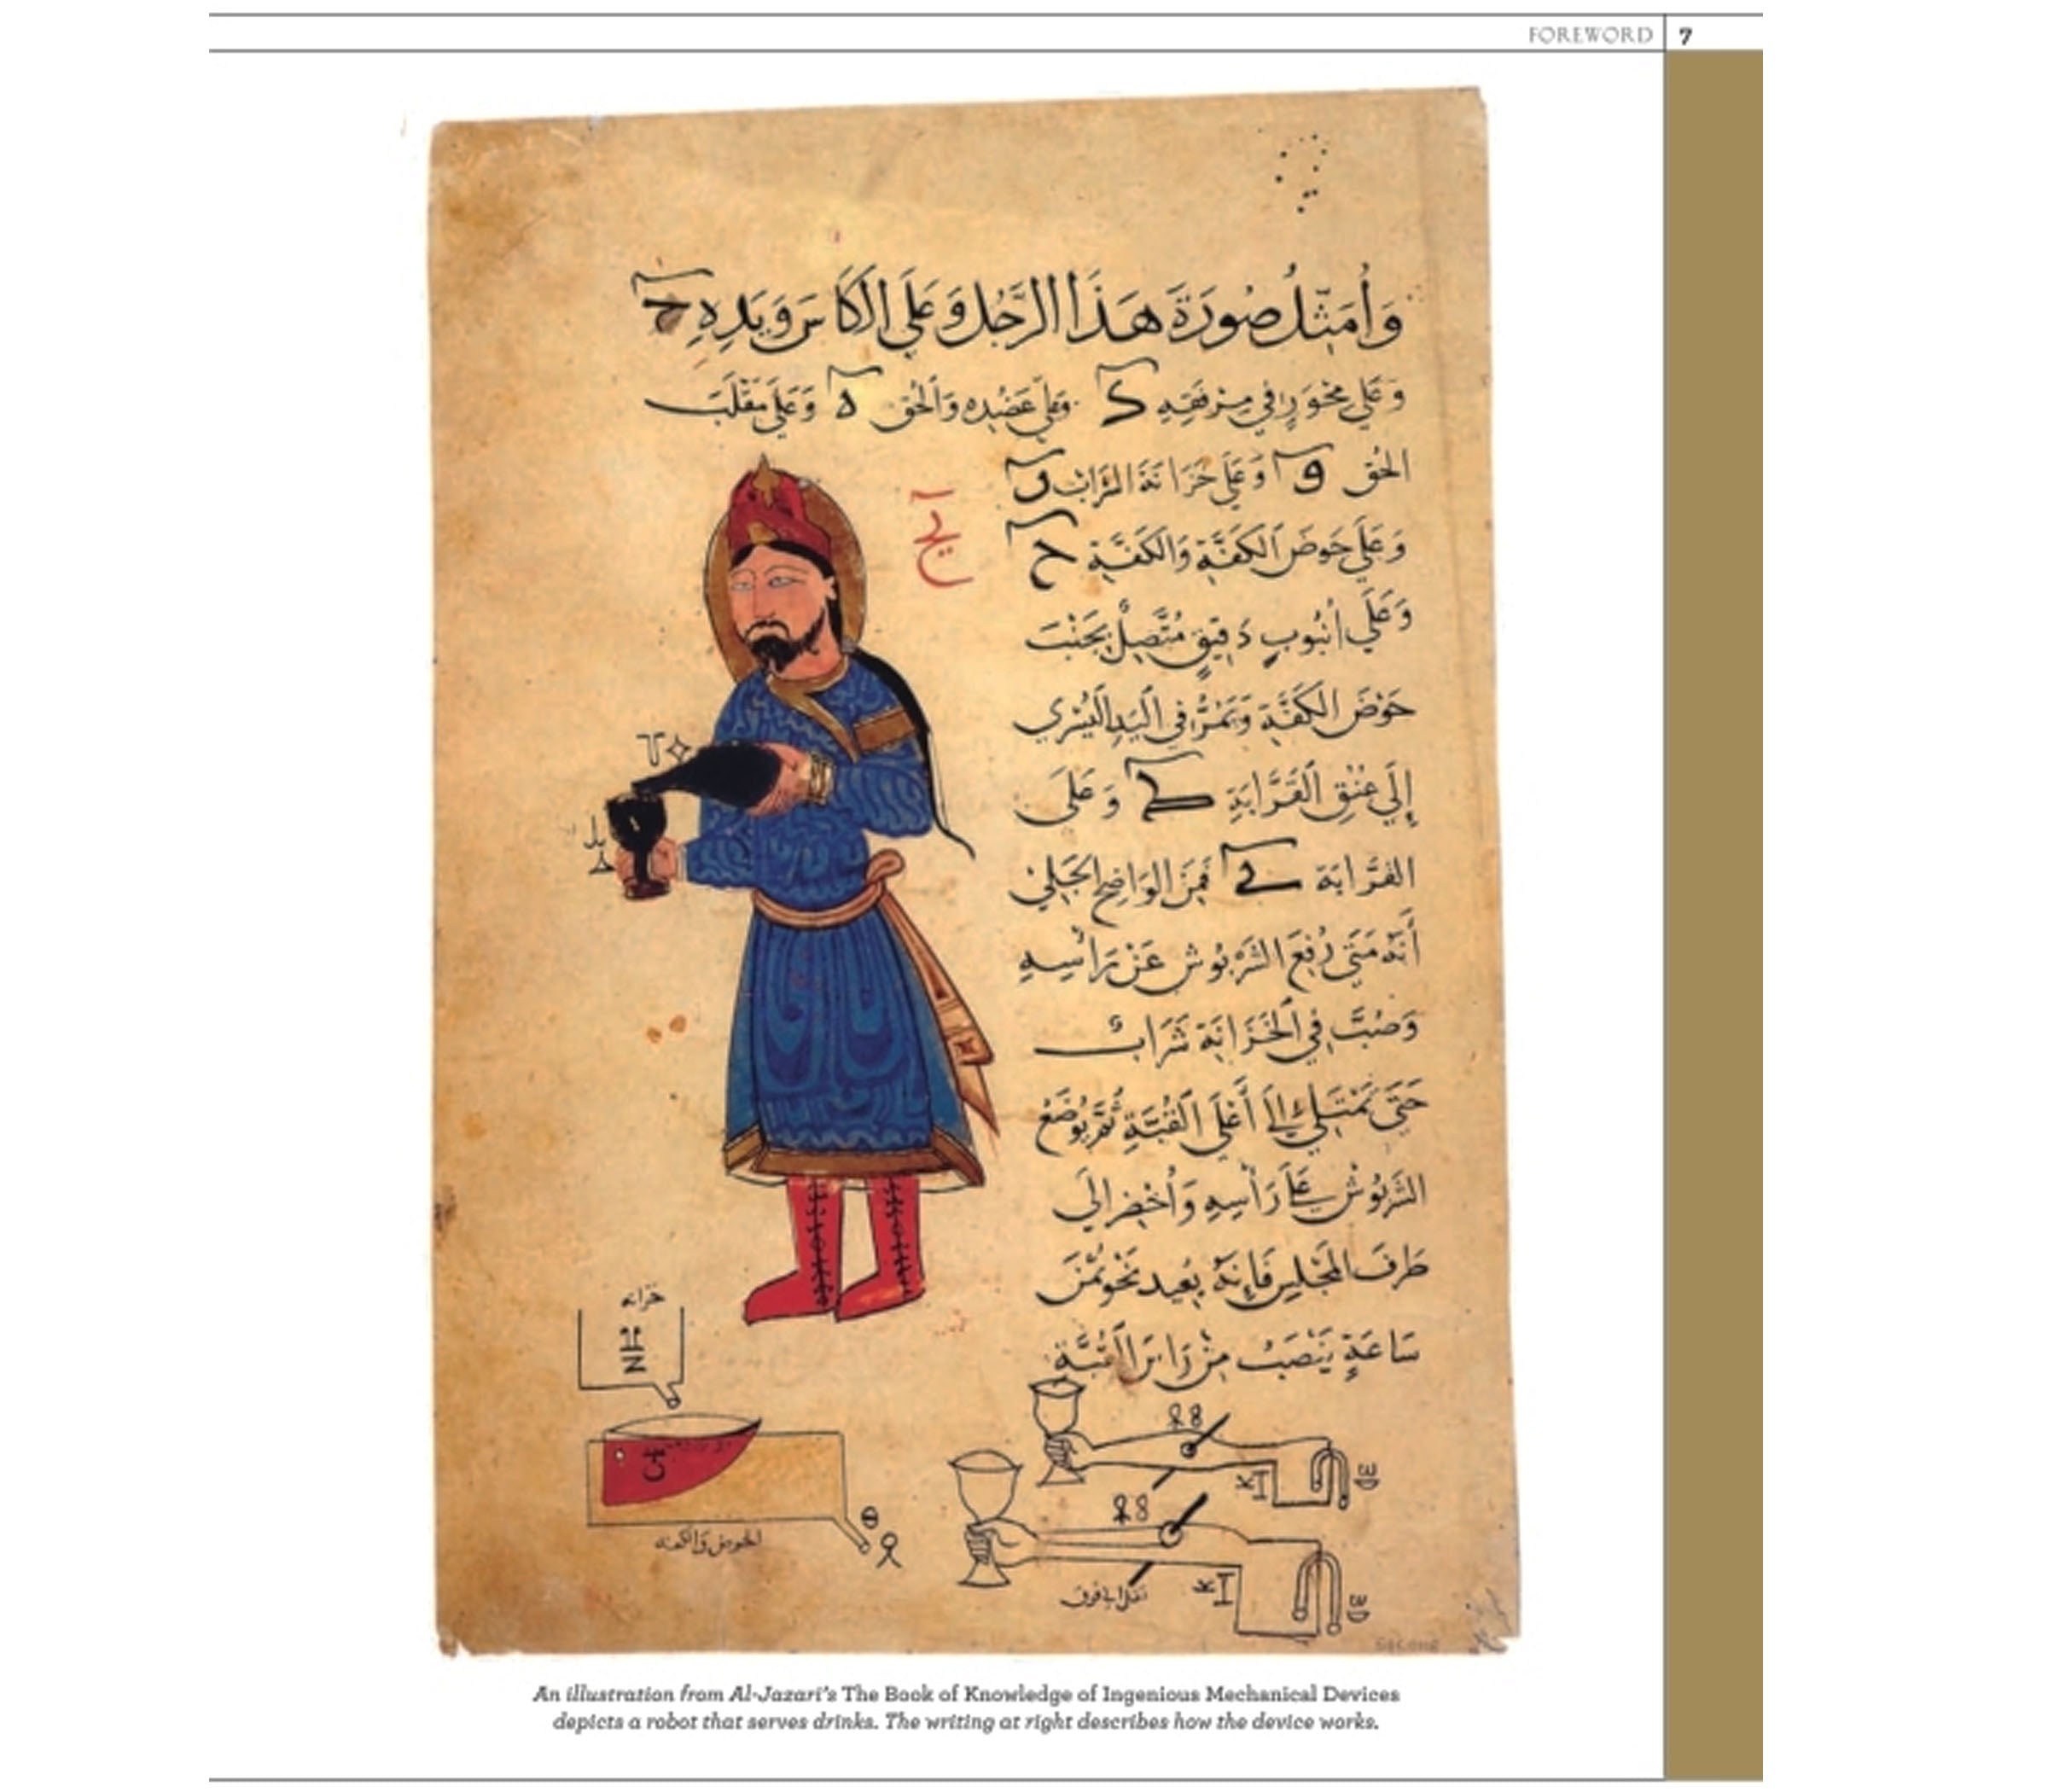 FOREWORD 7
وَأُمَثِّلُ صُورَةَ هَذَا الرَّجُلِ وَعَلَى الكَاسَ وَيَدِهِ ح
وَعَلَى مِحْوَرٍ فِي مِرْفَقِهِ ك وَعَلَى عَضُدِهِ وَالحُق ه وَعَلَى مَقْلَبَ
الحُق و وَعَلَى خَزَانَةَ الشَّرَابِ ر
وَعَلَى حَوضَ الكَفَّةِ وَالكَفَّةِ ح
وَعَلَى أُنْبُوبٍ دَقِيقٍ مُتَّصِلٌ بِجَنْبَ
حَوْضَ الكَفَّةِ وَيَمُرُّ فِي اليَدِ اليُسْرَي
إِلَى عُنُقِ القَرَّابَةِ وَعَلَى
القَرَّابَة فَمِنَ الوَاضِحِ الجَلِي
أَنَّهُ مَتَى رُفِعَ الشَّرْبُوش عَنْ رَأْسِهِ
وَصُبَّ فِي الخَزَانَةِ شَرَابٌ
حَتَّى يَمْتَلِي إِلَى أَعْلَى القُبَّةِ ثُمَّ يُوضَعُ
الشَّرْبُوش عَلَى رَأْسِهِ وَأُحْضِرَ إِلَى
طَرَفَ المَجْلِسِ فَإِنَّهُ بُعَيد نَحْو ثُمْنَ
سَاعَةٍ يَنْصَبُ مِنْ القُبَّةِ
خزانه
الحوض والكفه
An illustration from Al-Jazari's The Book of Knowledge of Ingenious Mechanical Devices
depicts a robot that serves drinks. The writing at right describes how the device works.